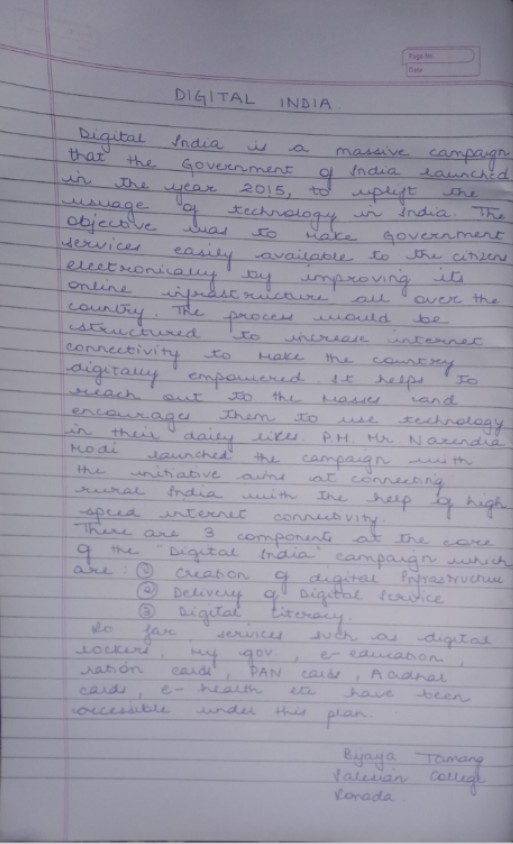 Page No.
Date
DIGITAL INDIA
Digital India is a massive campaign
that the Government of India launched
in the year 2015, to uplift the
usuage of technology in India. The
objective was to make Government
services easily available to the citizens
electronically by improving its
online infrastructure all over the
country. The process would be
structured to increase internet
connectivity to make the country
digitally empowered. It helps to
reach out to the masses and
encourages them to use technology
in their daily likes. P.M. Mr Narendra
Modi launched the campaign with
the initiative aims at connecting
rural India with the help of high
speed internet connectivity.
There are 3 components at the core
of the "Digital India" campaign which
are : ① Creation of digital Infrastructure
② Delivery of Digital Service
③ Digital literacy.
So far services such as digital
lockers, my gov., e-education,
ration cards, PAN cards, Aadhar
cards, e-health have been
accessible under this plan.
Bijaya Tamang
Salesian College
Sonada.